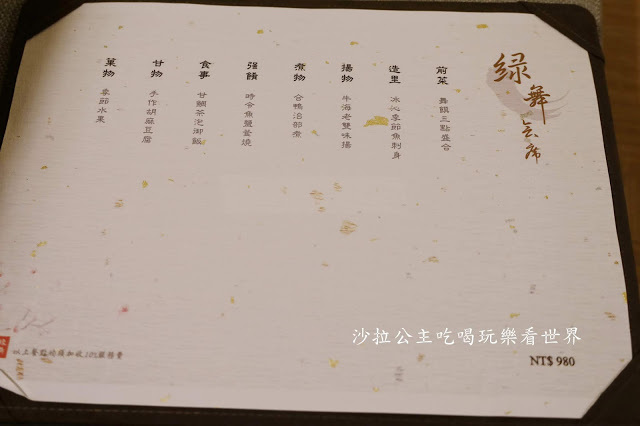 綠舞会席
前菜
舞饌三點盛合
造里
冰心季節魚刺身
揚物
牛海老雙味揚
煮物
合鴨治部煮
強餚
時令魚鹽釜燒
食事
甘鯛茶泡御飯
甘物
手作胡麻豆腐
菓物
季節水果
沙拉公主吃喝玩樂看世界
NT$ 980
以上餐點均須加收10%服務費